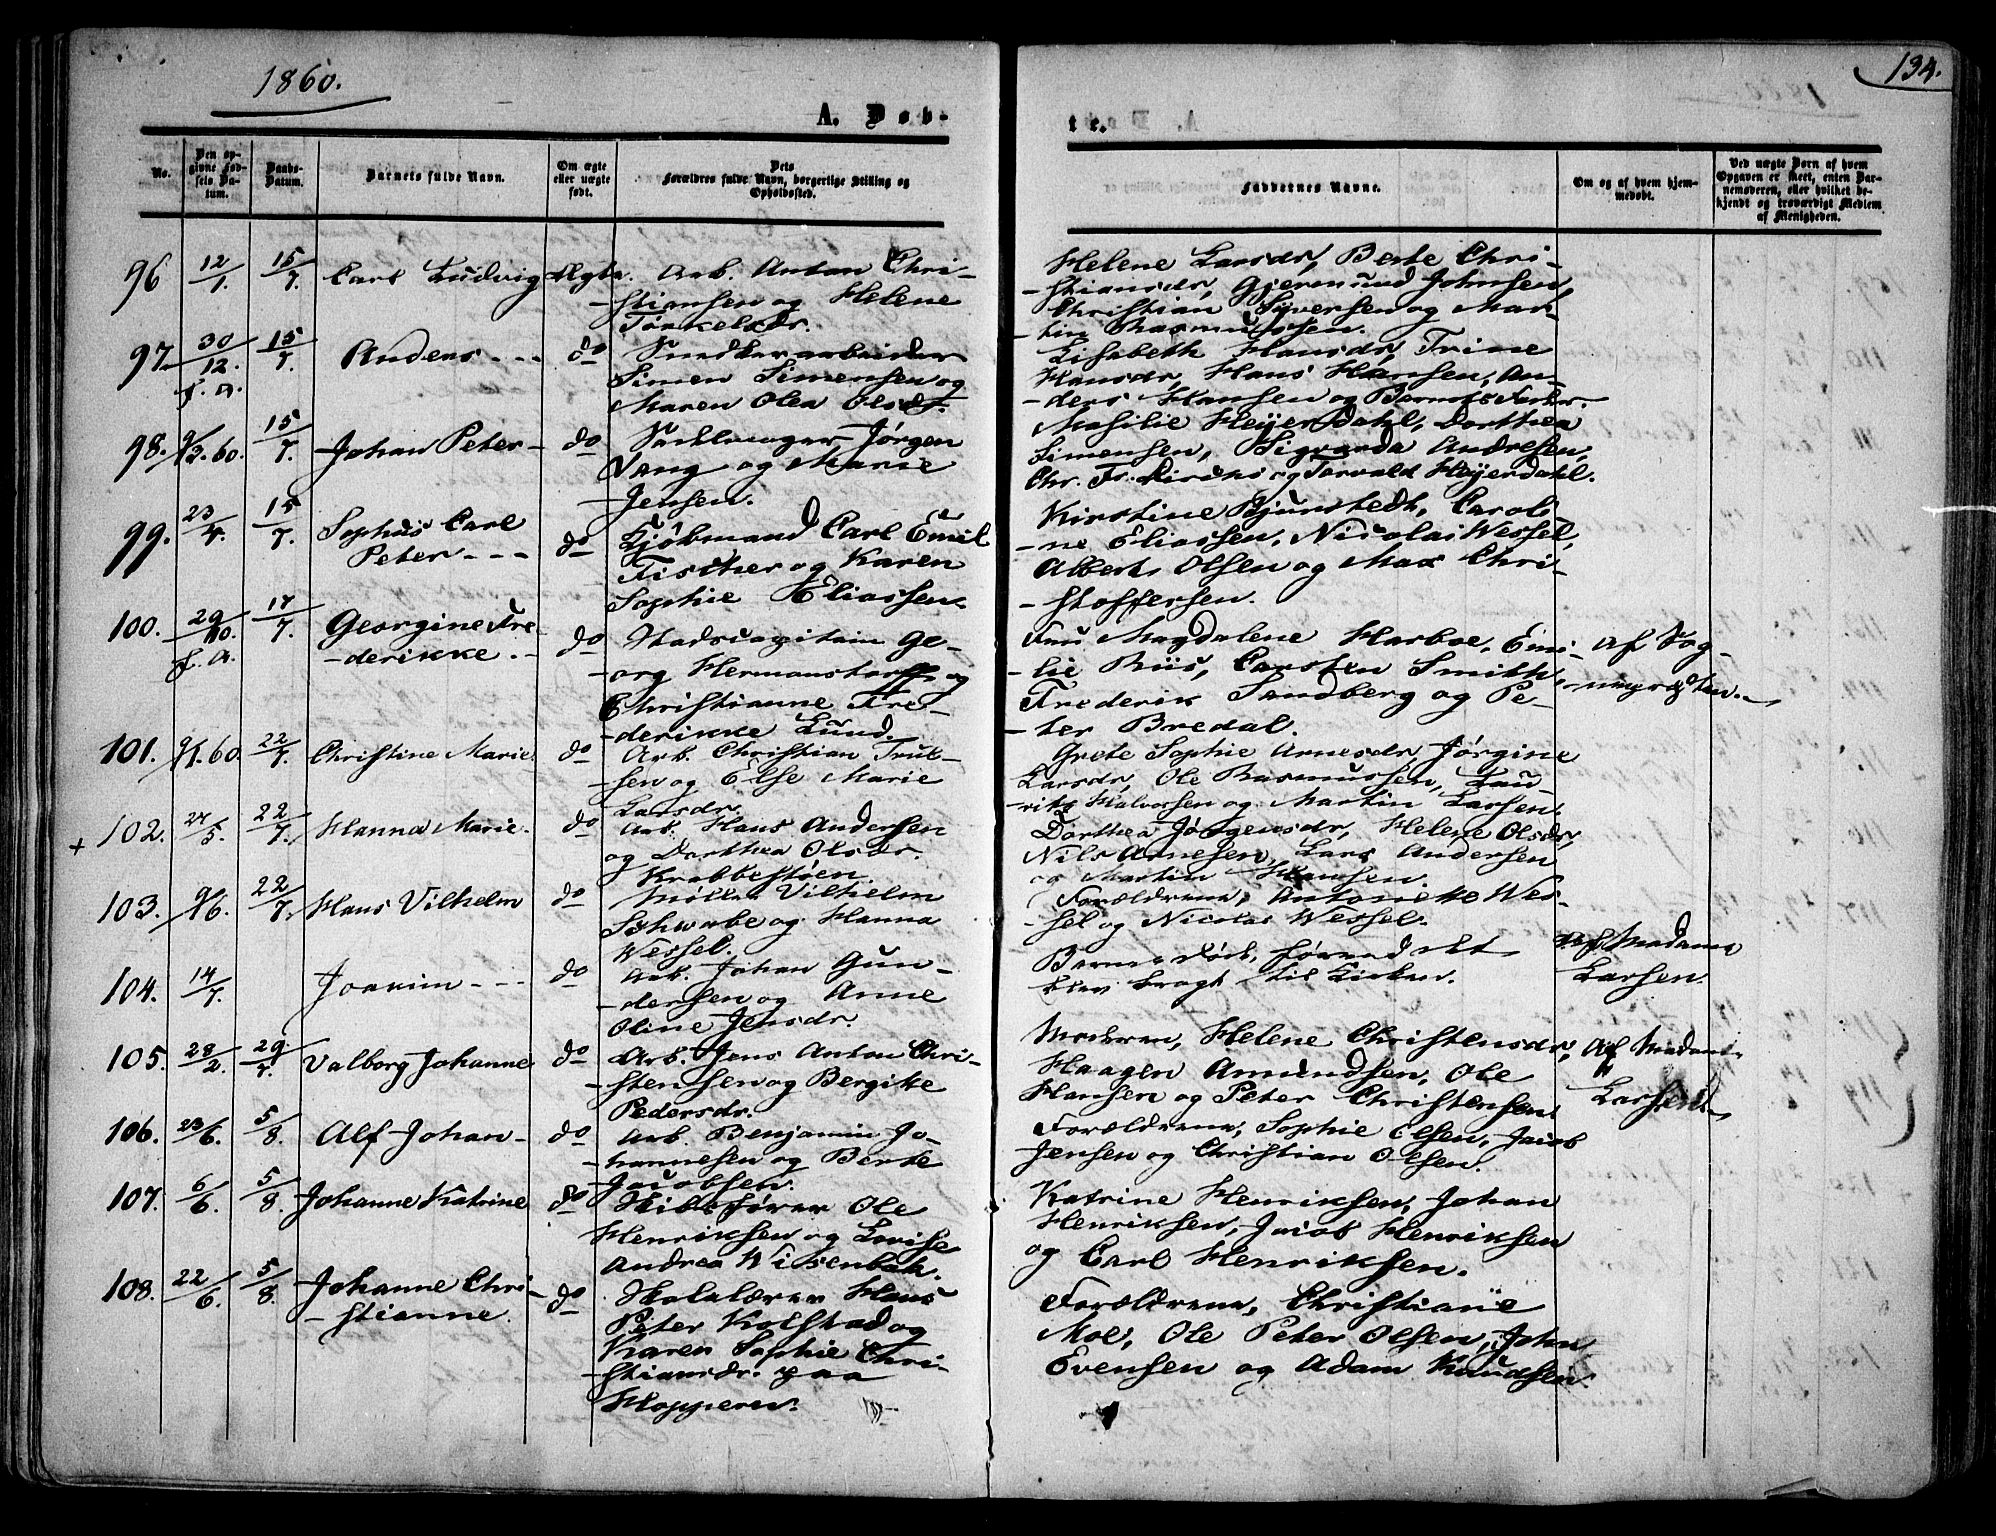 1860.
134.
A. Døb-
te.
No.
Den op-
givne Fød-
sels Da-
tum.
Daabs-
Datum.
Barnets fulde Navn.
Om ægte
eller uægte
født.
Dets
Forældres fulde Navn, borgerlige Stilling og
Opholdssted.
Faddernes Navne.
Om og af hvem hjem-
medøbt.
Ved uægte Børn af hvem
Opgaven er skeet, enten Bar-
nemoderen, eller hvilket be-
kjendt og troværdigt Medlem
af Menigheden.
96 12/1. 15/7. Carl Ludvig Ægte. Arb. Anton Chri-
stiansen og Helene
Torkelsdr.
Helene Larsdr, Berte Chri-
stiansdr, Gjermund Johnsen,
Christian Syversen og Mar-
tin Rasmussen.
97. 30/12. f. A. 15/7. Anders - - - do Snedkerarbeider
Simen Simensen og
Maren Olea Olsdr.
Lisabeth Hansdr, Trine
Hansdr, Hans Hansen, An-
ders Hansen og Barnets Fader.
98. 9/3.60. 15/7. Johan Peter - do Sadelmager Jørgen
Vang og Marie
Jensen.
Masilie Heyerdahl, Dorthea
Simensen, Sigvarda Andresen,
Chr. Fr. Dirdhs og Torvald Heyerdahl.
99. 23/4. 15/7. Sophus Carl
Peter - - - do Kjøbmand Carl Emil
Fischer og Karen
Sophie Eliassen.
Kirstine Bjunstedt, Caroli-
ne Eliassen, Nicolai Wessel,
Albert Olsen og Max Chri-
stoffersen.
100. 29/10. f. A. 17/7. Georgine Fre-
derikke. - do Stadscapitain Ge-
org Hermanstorff og
Christianne Fre-
derikke Lund.
Fru Magdalene Harboe, Emi-
lie Riis, Carsten Smith,
Frederik Sandberg og Pe-
ter Bredal.
Af Sog-
nepresten.
101. 9/1.60. 22/7. Christine Marie. do Arb. Christian Trul-
sen og Else Marie
Larsdr.
Grete Sophie Arnesdr, Jørgine
Larsdr, Ole Rasmussen, Lau-
rits Halvorsen og Martin Larsen.
+ 102. 27/5. 22/7. Hanna Marie. do Arb. Hans Andersen
og Dorthea Olsdr.
Krabbestøen.
Dorthea Jørgensdr, Helene Olsdr,
Nils Arnesen, Lars Andersen
og Martin Hansen.
103. 9/6. 22/7. Hans Vilhelm do Møller Vilhelm
Schwabe og Hanna
Wessel.
Forældrene, Antonette Wes-
sel og Nicolai Wessel.
104. 14/7. Joakim - - - do Arb. Johan Gun-
dersen og Anne
Oline Jensdr.
Barnet døde, førend det
blev bragt til Kirken.
Af Madame
Larsen.
105. 28/2. 29/7. Valborg Johanne do Arb. Jens Anton Chri-
stensen og Bergike
Pedersdr.
Moderen, Helene Christensdr,
Haagen Amundsen, Ole
Hansen og Peter Christensen.
Af Madam
Larsen
106. 23/6. 5/8. Alf Johan - do Arb. Benjamin Jo-
hannesen og Berte
Jacobsen.
Forældrene, Sophie Olsen, Jacob
Jensen og Christian Olsen.
107. 6/6. 5/8. Johanne Katrine do Skibsfører Ole
Henriksen og Lovise
Andrea Wissenbak.
Katrine Henriksen, Johan
Henriksen, Jacob Henriksen
og Carl Henriksen.
108. 22/6. 5/8. Johanne Chri-
stianne. do Skolelærer Hans
Peter Kolstad og
Karen Sophie Chri-
stiansdr. paa
Hopperen.
Forældrene, Christiane
Moe, Ole Peter Olsen, John
Evensen og Adam Knudsen.